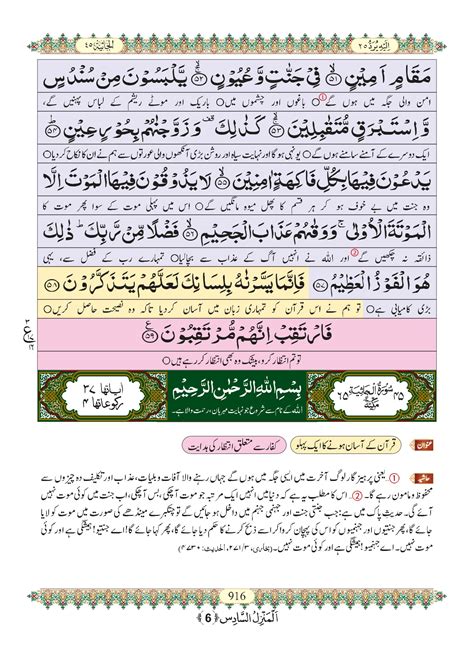 اِلَیْهِ یُرَدُّ ٢٥ اَلْجَاثِیَة ٤٥
مَقَامٍ اَمِیْنٍ ﴿٥١﴾ فِیْ جَنّٰتٍ وَّ عُیُوْنٍ ﴿٥٢﴾ یَّلْبَسُوْنَ مِنْ سُنْدُسٍ
امن والی جگہ میں ہوں گے ① ○ باغوں اور چشموں میں ○ باریک اور موٹے ریشم کے لباس پہنیں گے،
وَّ اِسْتَبْرَقٍ مُّتَقٰبِلِیْنَ ﴿٥٣﴾ كَذٰلِكَ ۫ وَ زَوَّجْنٰهُمْ بِحُوْرٍ عِیْنٍ ﴿٥٤﴾
ایک دوسرے کے آمنے سامنے ہوں گے ○ یونہی ہوگا اور نہایت سیاہ اور روشن بڑی آنکھوں والی عورتوں سے ہم نے ان کا نکاح کردیا ○
یَدْعُوْنَ فِیْهَا بِكُلِّ فَاكِهَةٍ اٰمِنِیْنَ ﴿٥٥﴾ لَا یَذُوْقُوْنَ فِیْهَا الْمَوْتَ اِلَّا
وہ جنت میں بے خوف ہو کر ہر قسم کا پھل میوہ مانگیں گے ○ اس میں پہلی موت کے سوا پھر موت کا
الْمَوْتَةَ الْاُوْلٰى ۚ وَ وَقٰىهُمْ عَذَابَ الْجَحِیْمِ ﴿٥٦﴾ فَضْلًا مِّنْ رَّبِّكَ ؕ ذٰلِكَ
ذائقہ نہ چکھیں گے ② اور اللہ نے انہیں آگ کے عذاب سے بچالیا ○ تمہارے رب کے فضل سے، یہی
هُوَ الْفَوْزُ الْعَظِیْمُ ﴿٥٧﴾ فَاِنَّمَا یَسَّرْنٰهُ بِلِسَانِكَ لَعَلَّهُمْ یَتَذَكَّرُوْنَ ﴿٥٨﴾
بڑی کامیابی ہے ○ تو ہم نے اس قرآن کو تمہاری زبان میں آسان کردیا تاکہ وہ نصیحت حاصل کریں ○
فَارْتَقِبْ اِنَّهُمْ مُّرْتَقِبُوْنَ ﴿٥٩﴾
تو تم انتظار کرو، بیشک وہ بھی انتظار کررہے ہیں ○
٤٥ سُوْرَةُ الْجَاثِیَةِ مَكِّیَّةٌ ٦٥
بِسْمِ اللّٰهِ الرَّحْمٰنِ الرَّحِیْمِ
اللہ کے نام سے شروع جو نہایت مہربان، رحمت والا ہے۔
اٰیاتها ٣٧
ركوعاتها ٤
عنوان قرآن کے آسان ہونے کا ایک پہلو کفار سے متعلق انتظار کی ہدایت
حاشیہ ①۔ یعنی پرہیز گار لوگ آخرت میں ایسی جگہ میں ہوں گے جہاں رہنے والا آفات و بلیات، عذاب اور تکلیف دہ چیزوں سے
محفوظ و مامون رہے گا۔ ②۔ اس کا مطلب یہ ہے کہ دنیا میں انہیں ایک مرتبہ جو موت آچکی، بس آچکی، اب جنت میں کوئی موت نہیں
آئے گی۔ حدیث پاک میں ہے: جب جنتی جنت اور جہنمی جہنم میں داخل ہو جائیں گے تو چتکبرے مینڈھے کی صورت میں موت کو لایا
جائے گا، پھر جنتیوں اور جہنمیوں کو اس کی پہچان کروا کر اسے ذبح کرنے کا حکم دیا جائے گا، پھر کہا جائے گا: اے جنتیو! ہمیشگی ہے اور
کوئی موت نہیں۔ اے جہنمیو! ہمیشگی ہے اور کوئی موت نہیں۔ (بخاری، ٣/٢٧١، الحدیث: ٤٧٣٠)
916
اَلْمَنْزِلُ السَّادِس ﴿6﴾